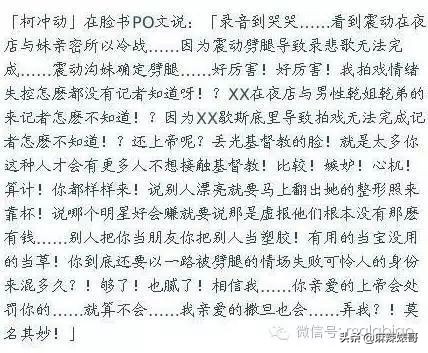 「柯冲动」在脸书PO文说：「录音到哭哭……看到震动在夜
店与妹亲密所以冷战……因为震动劈腿导致录悲歌无法完
成……震动沟妹确定劈腿……好厉害！好厉害！我拍戏情绪
失控怎麽都没有记者知道呀！？XX在夜店与男性乾姐乾弟的
来记者怎麽不知道！？因为XX歇斯底里导致拍戏无法完成记
者怎麽不知道！？还上帝呢？丢光基督教的脸！就是太多你
这种人才会有更多人不想接触基督教！比较！嫉妒！心机！
算计！你都样样来！说别人漂亮就要马上翻出她的整形照来
靠杯！说哪个明星好会赚就要说那是虚报他们根本没有那麽
有钱……别人把你当朋友你把别人当塑胶！有用的当宝没用
的当草！你到底还要以一路被劈腿的情场失败可怜人的身份
来混多久？！够了！也腻了！相信我……你亲爱的上帝会处
罚你的……就算不会……我亲爱的撒旦也会……弄我？！莫
名其妙！」
微信号:
头条 @麻辣娱哥